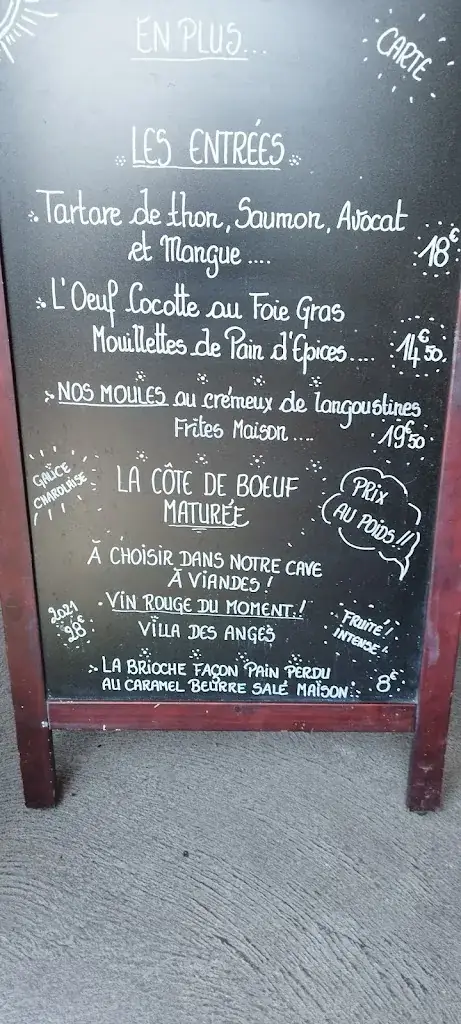 EN PLUS...
CARTE
LES ENTRÉES
Tartare de thon, Saumon, Avocat
et Mangue .... 18€
L'Oeuf Cocotte au Foie Gras
Mouillettes de Pain d'Epices.... 14€50
NOS MOULES au crémeux de langoustines
Frites Maison .... 19€50
GALICE
CHAROLAISE
LA CÔTE DE BOEUF
MATURÉE
PRIX
AU POIDS !!
À CHOISIR DANS NOTRE CAVE
À VIANDES !
VIN ROUGE DU MOMENT !
VILLA DES ANGES
2021
28€
FRUITÉ !
INTENSE !
LA BRIOCHE FAÇON PAIN PERDU
AU CARAMEL BEURRE SALÉ MAISON : 8€